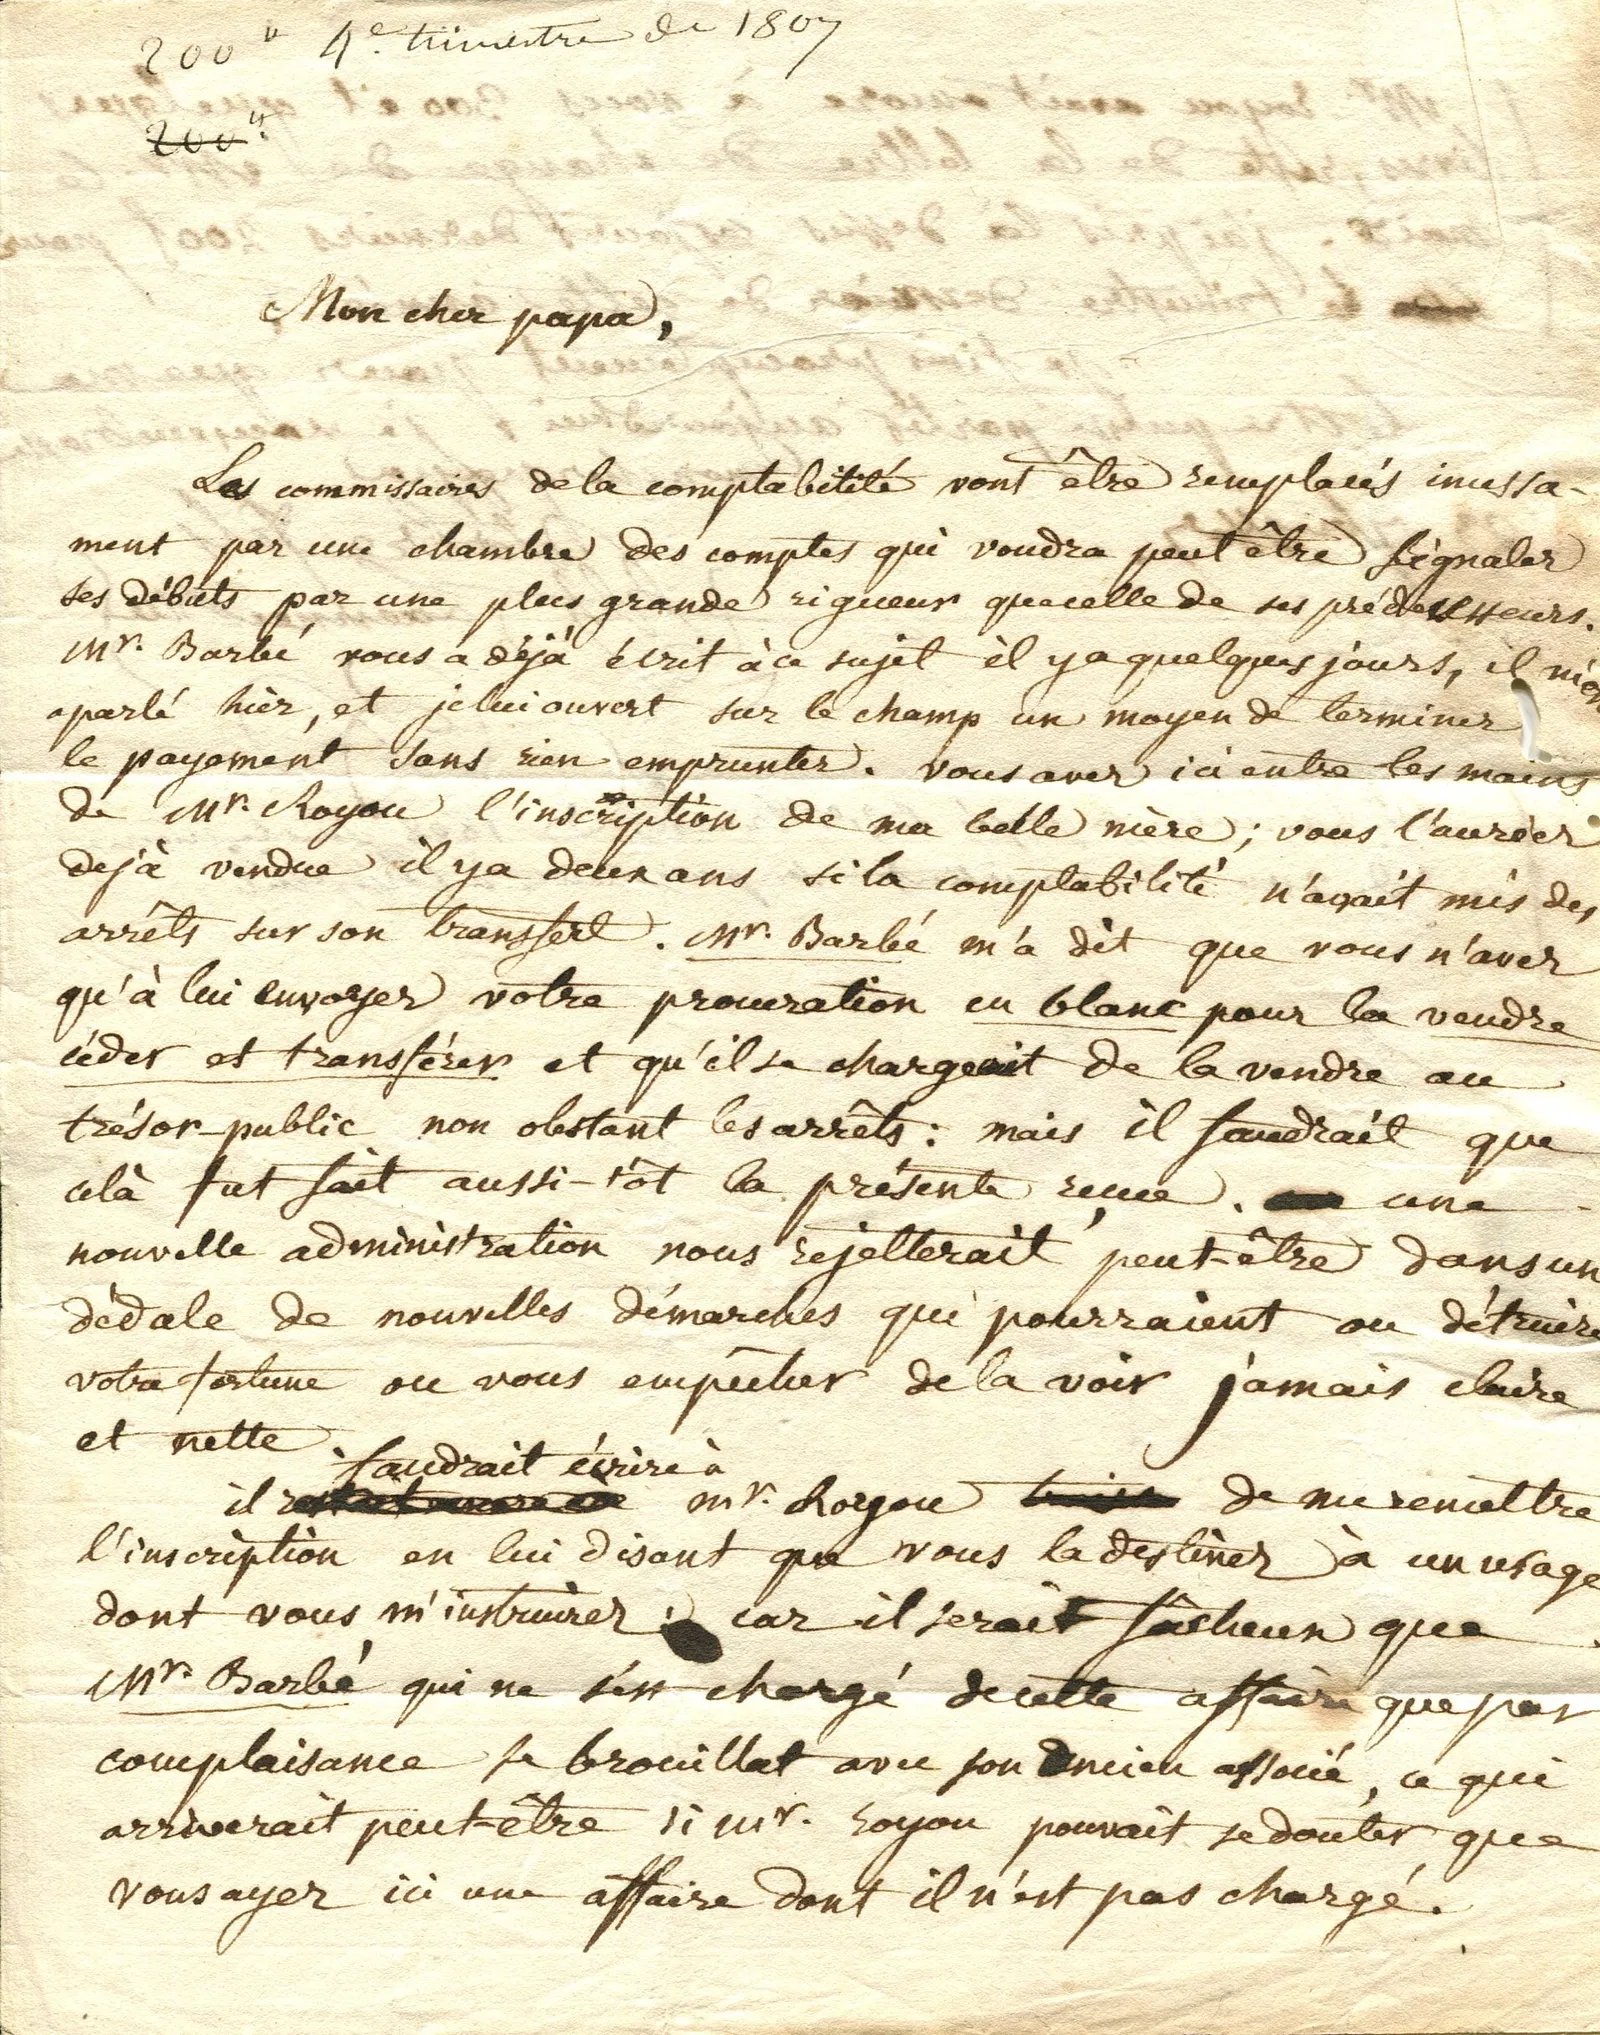 200 # 4e. trimestre de 1807
200 #.
Mon cher papa,
Les commissaires de la comptabilité vont être remplacés incessa-
ment par une chambre des comptes qui voudra peut être signaler
ses débuts par une plus grande rigueur que celle de ses prédecesseurs.
Mr. Barbé vous a déjà écrit à ce sujet il y a quelques jours, il m'en
a parlé hier, et je lui ouvert sur le champ un moyen de terminer
le payement sans rien emprunter. vous avez ici entre les mains
de Mr. Royou l'inscription de ma belle mère; vous l'auriez
dejà vendue il y a deux ans si la comptabilité n'avait mis des
arrêts sur son transfert. Mr. Barbé m'a dit que vous n'avez
qu'à lui envoyer votre procuration en blanc pour la vendre
céder et transférer et qu'il se chargeait de la vendre au
trésor-public non obstant les arrêts: mais il faudrait que
celà fut fait aussi-tôt la présente reçue. une
nouvelle administration nous rejetterait peut-être dans un
dédale de nouvelles démarches qui pourraient ou détruire
votre fortune ou vous empêcher de la voir jamais claire
et nette.
faudrait écrire à
il mr. Royou de me remettre
l'inscription en lui disant que vous la destinez à un usage
dont vous m'instruirez; car il serait fâcheux que
Mr. Barbé qui ne s'est chargé de cette affaire que par
complaisance se brouillat avec son ancien associé, ce qui
arriverait peut-être si mr. royou pouvait se douter que
vous ayez ici une affaire dont il n'est pas chargé.